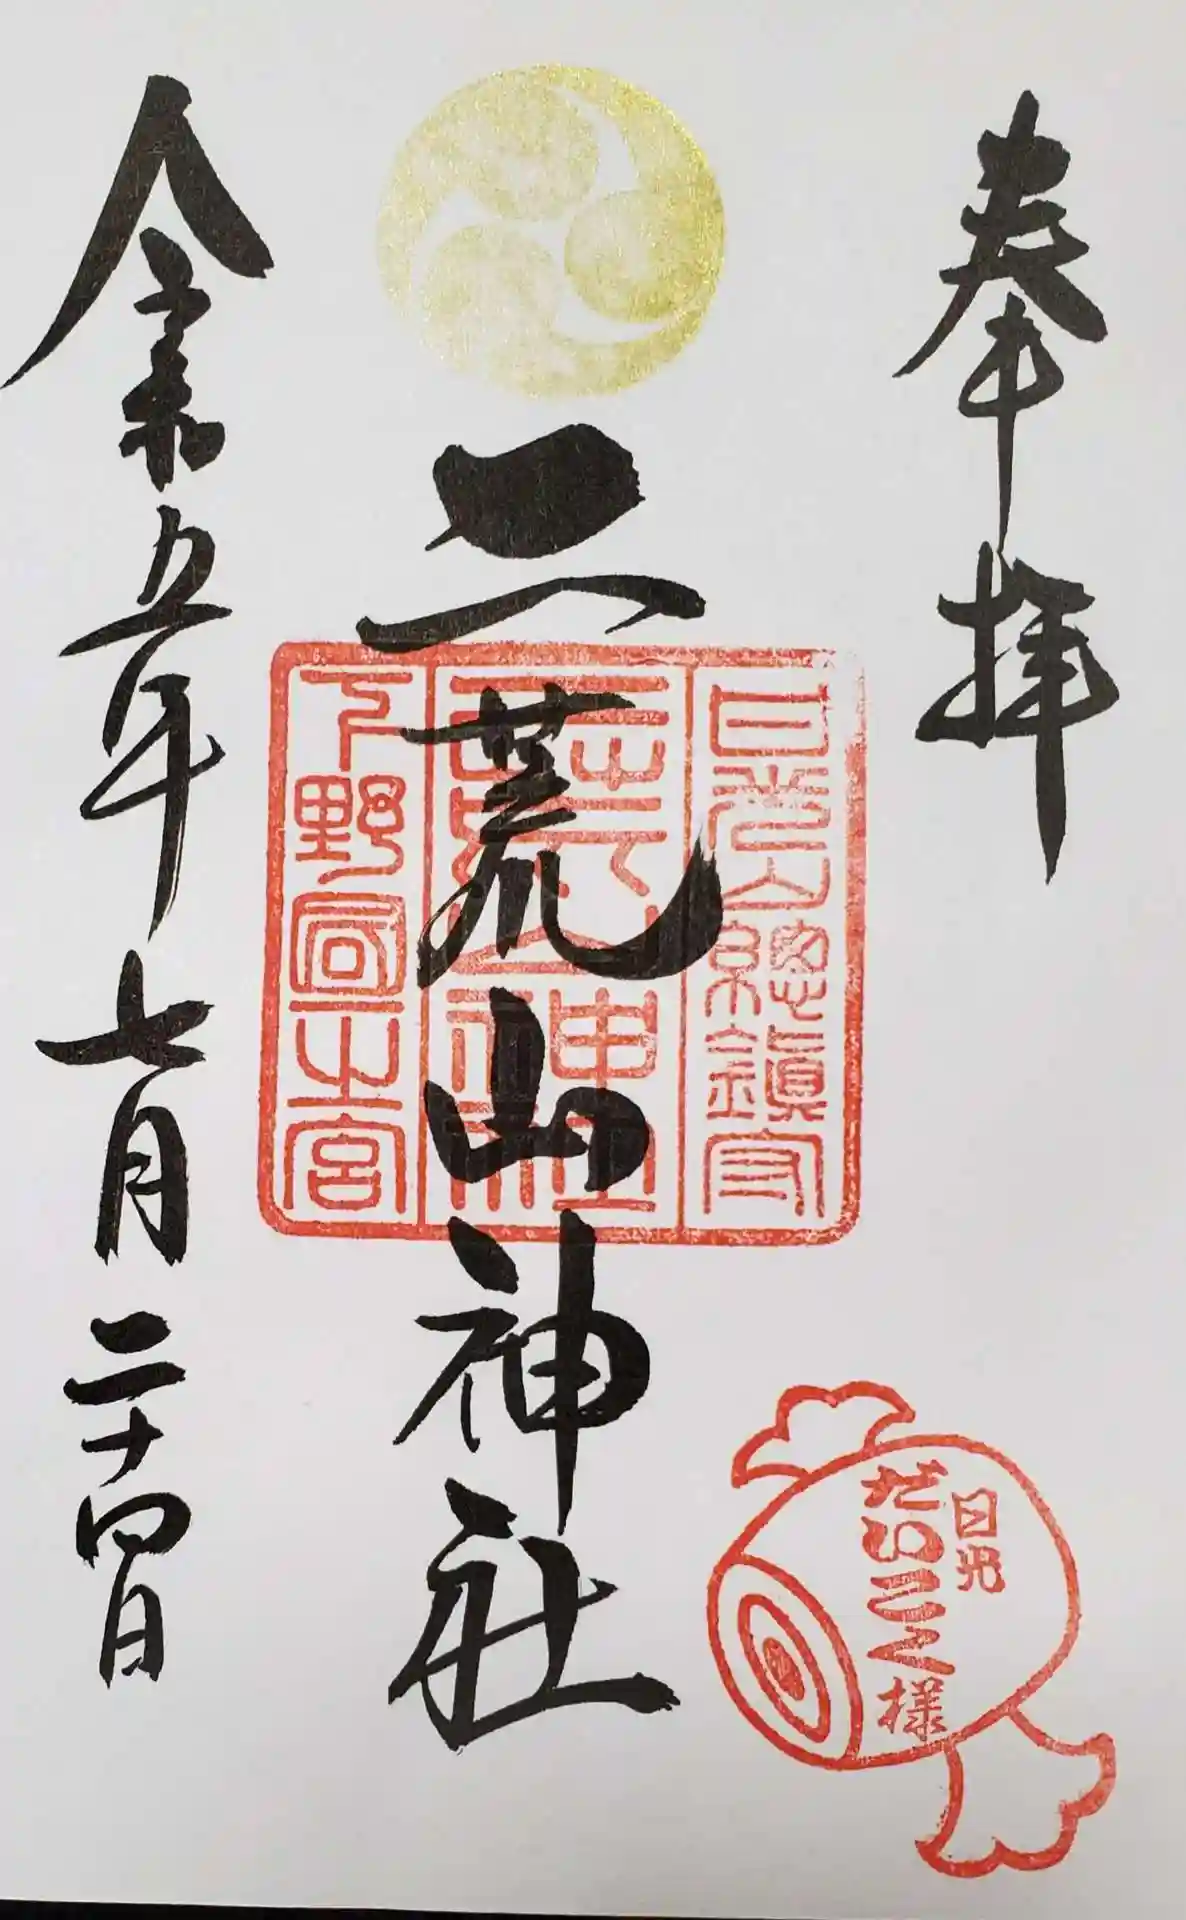 奉拝
二荒山神社
令和五年七月二十四日
日光山總鎮守
二荒山神社
下野國一之宮
日光
だいこく様